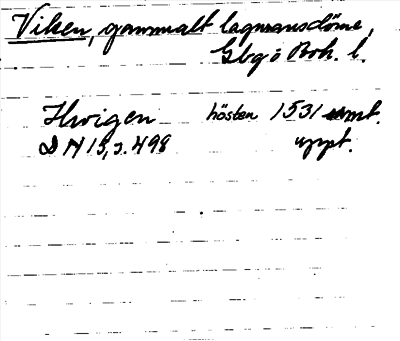 Viken, gammalt lagmansdöme,
Gbg o Boh. l.
Hwigen hösten 1531 samt.
DN 15, s. 498 uppt.